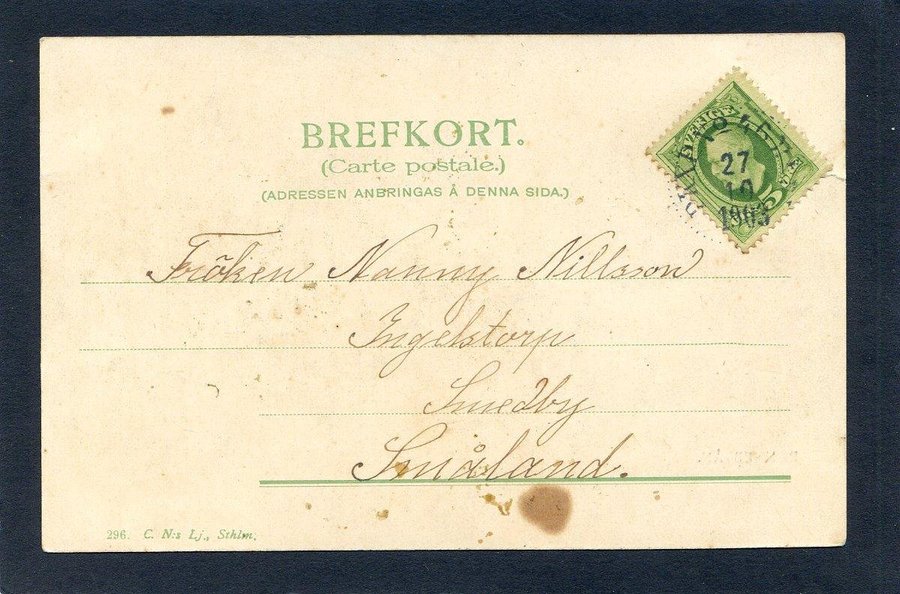 BREFKORT.
(Carte postale.)
(ADRESSEN ANBRINGAS Å DENNA SIDA.)
SVERIGE
27
10
1903
Fröken Nanny Nillsson
Ingelstorp
Smedby
Småland.
296. C. N:s Lj., Sthlm.